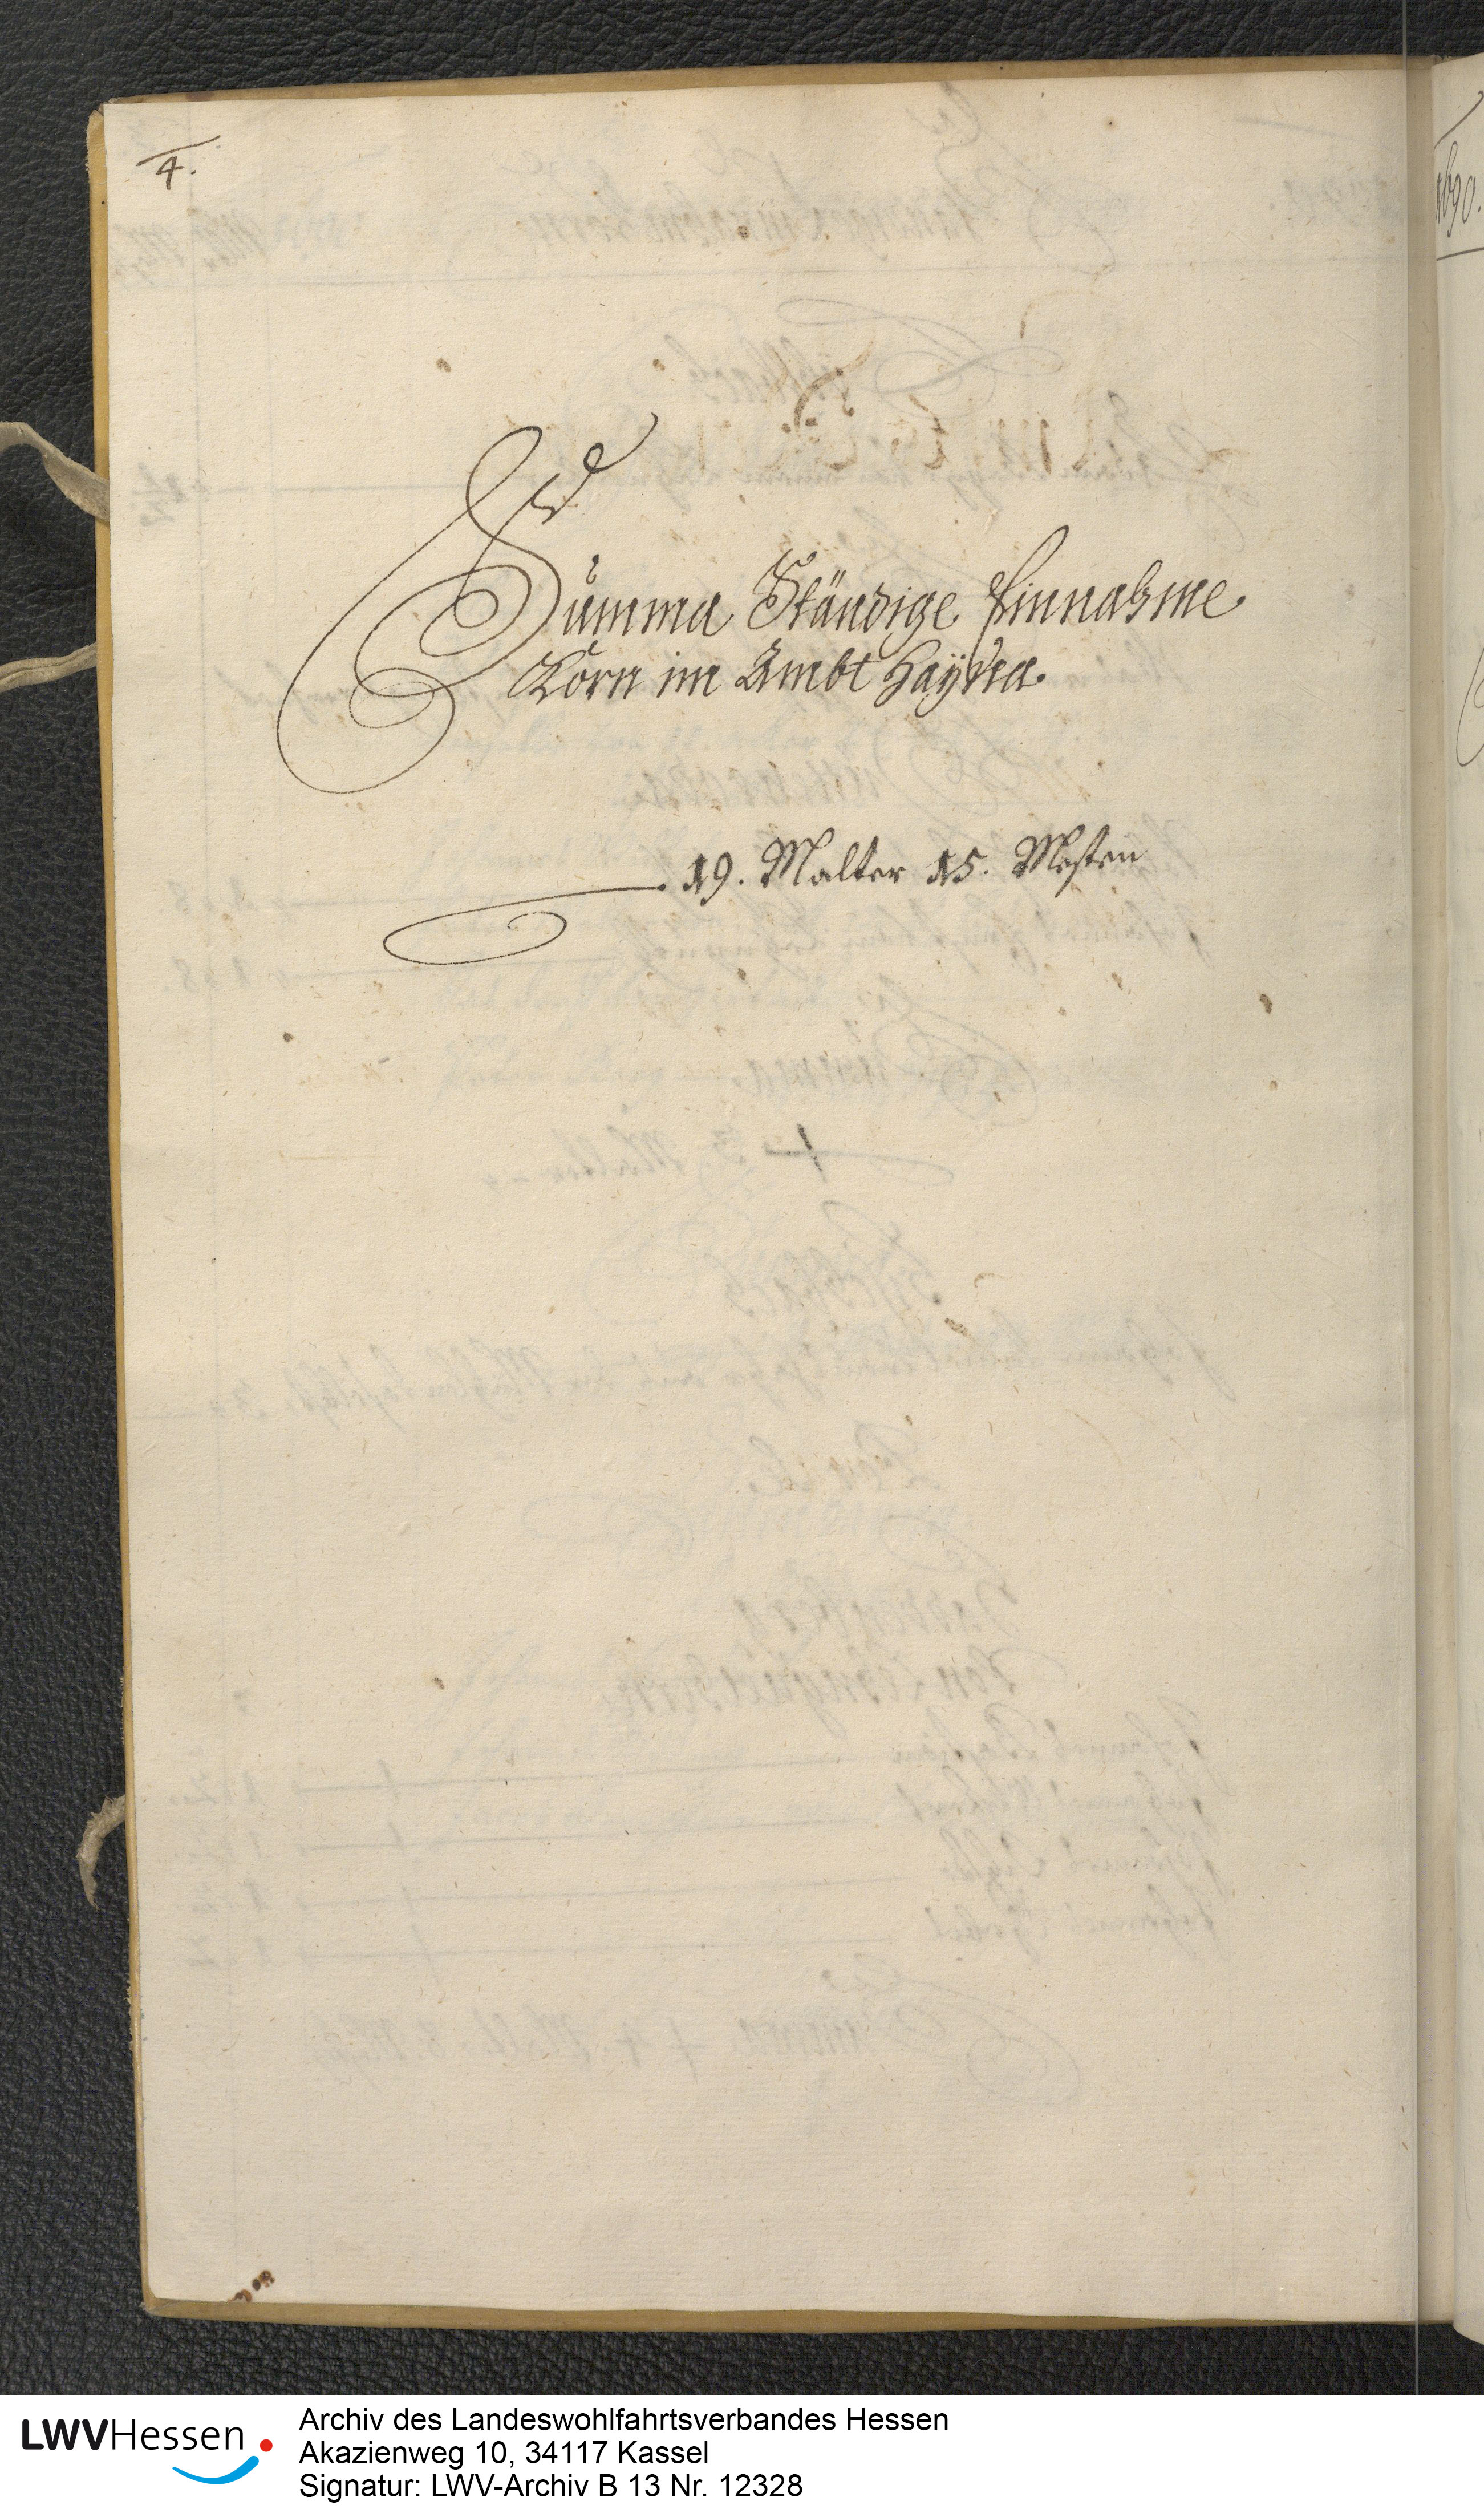 4.
1690.
Summa Ständige Einnahme
Korn im Ambt Haÿna
19. Malter 15. Mesten
LWVHessen
Archiv des Landeswohlfahrtsverbandes Hessen
Akazienweg 10, 34117 Kassel
Signatur: LWV-Archiv B 13 Nr. 12328